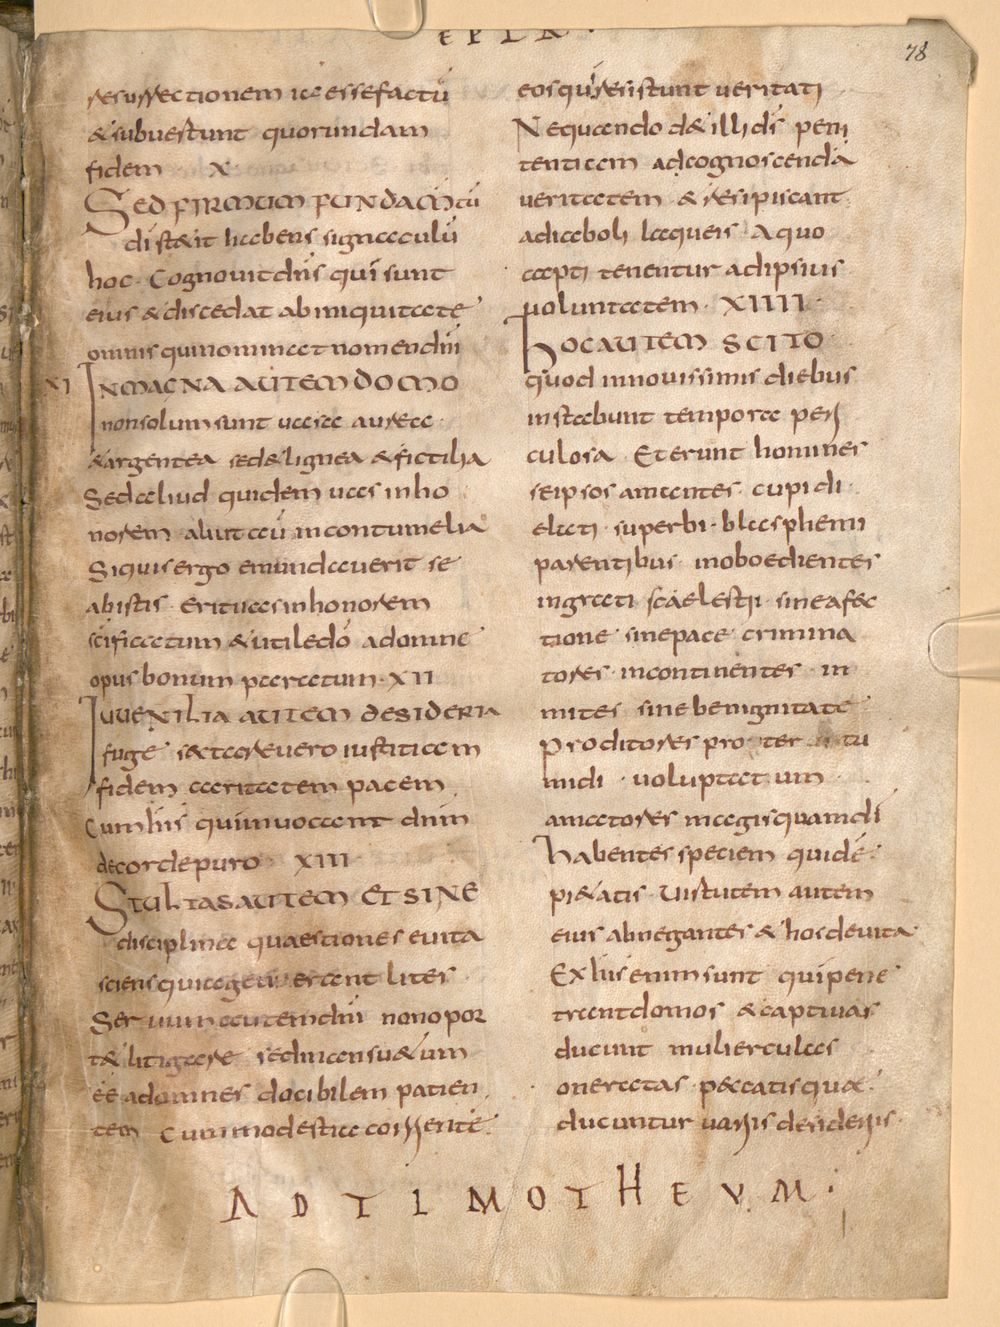 EPLA·
78
resurrectionem iã esse factū
& subuertunt quorundam
fidem X
SED FIRMUM FUNDAMtū
di stetit habens signaculū
hoc· Cognouit dn̄s qui sunt
eius & discedat ab iniquitate
omnis qui nominat nomen dn̄i
XI IN MAGNA AUTEM DOMO
non solum sunt uasa aurea·
& argentea sed & lignea & fictilia
Sed aliud quidem uas in ho
norem aliut aū in contumelia
Siquis ergo emundauerit se
ab istis· erit uas in honorem
sc̄ificatum & utile dn̄o ad omne
opus bonum paratum· XII
IUUENILIA AUTEM DESIDERIA
fuge sectare uero iustitiam
fidem caritatem pacem
Cum his qui inuocant dnm
de corde puro· XIII
STULTAS AUTEM ET SINE
disciplina quaestiones euita
sciens quia generant lites
Seruum autem dn̄i non opor
t& litigare sed mansu&um
ēē ad omnes docibilem patien
tem Cum modestia corripiente
eos qui resistunt ueritati
Nequando d& illis ds̄ peni
tentiam ad cognoscendā
ueritatem & resipiscant
a diaboli laqueis A quo
capti tenentur ad ipsius
uoluntatem· XIIII·
HOC AUTEM SCITO
quod in nouissimis diebus
instabunt tempora peri
culosa Et erunt homines
seipsos amantes· cupidi·
elati· superbi· blasphemi
parentibus· inoboedientes
ingrati scaelesti· sine afec
tione· sine pace· crimina
tores· incontinentes· in
mites sine benignitate
Proditores pro ter tu
midi· uoluptatum
amatores magis quam di
habentes speciem quidē·
pi&atis· Uirtutem autem
eius abnegantes & hos deuita·
Ex his enim sunt qui pene
trant domos & captiuas
ducunt mulierculas
oneratas peccatis quae·
ducuntur uariis desideriis·
AD TIMOTHEVM·